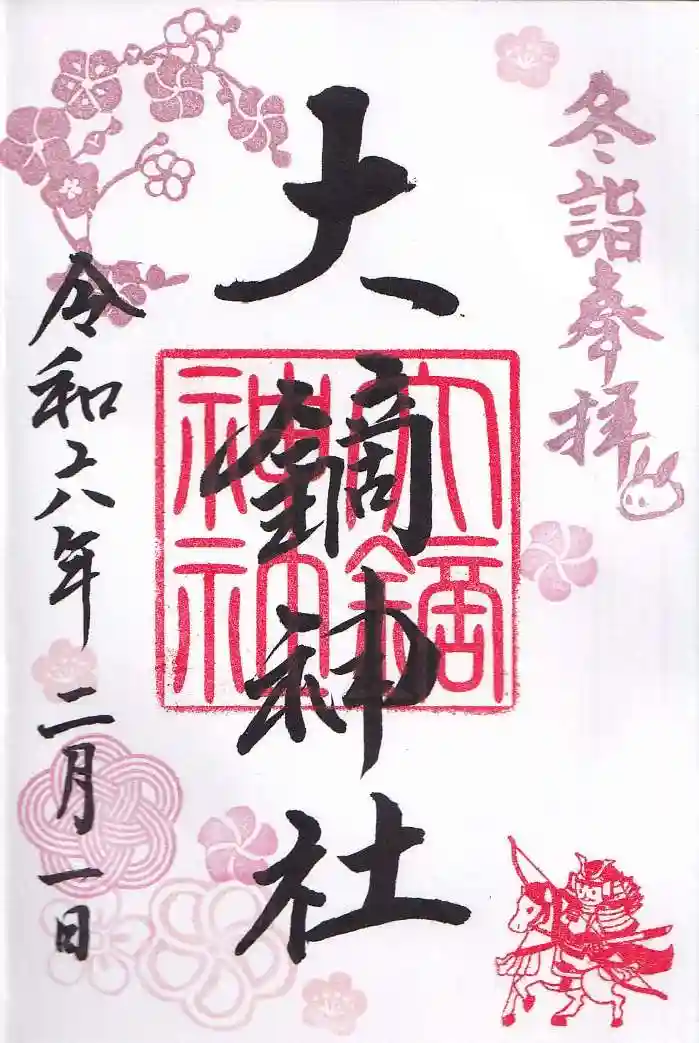 冬詣奉拝
大鏑神社
令和六年
二月一日